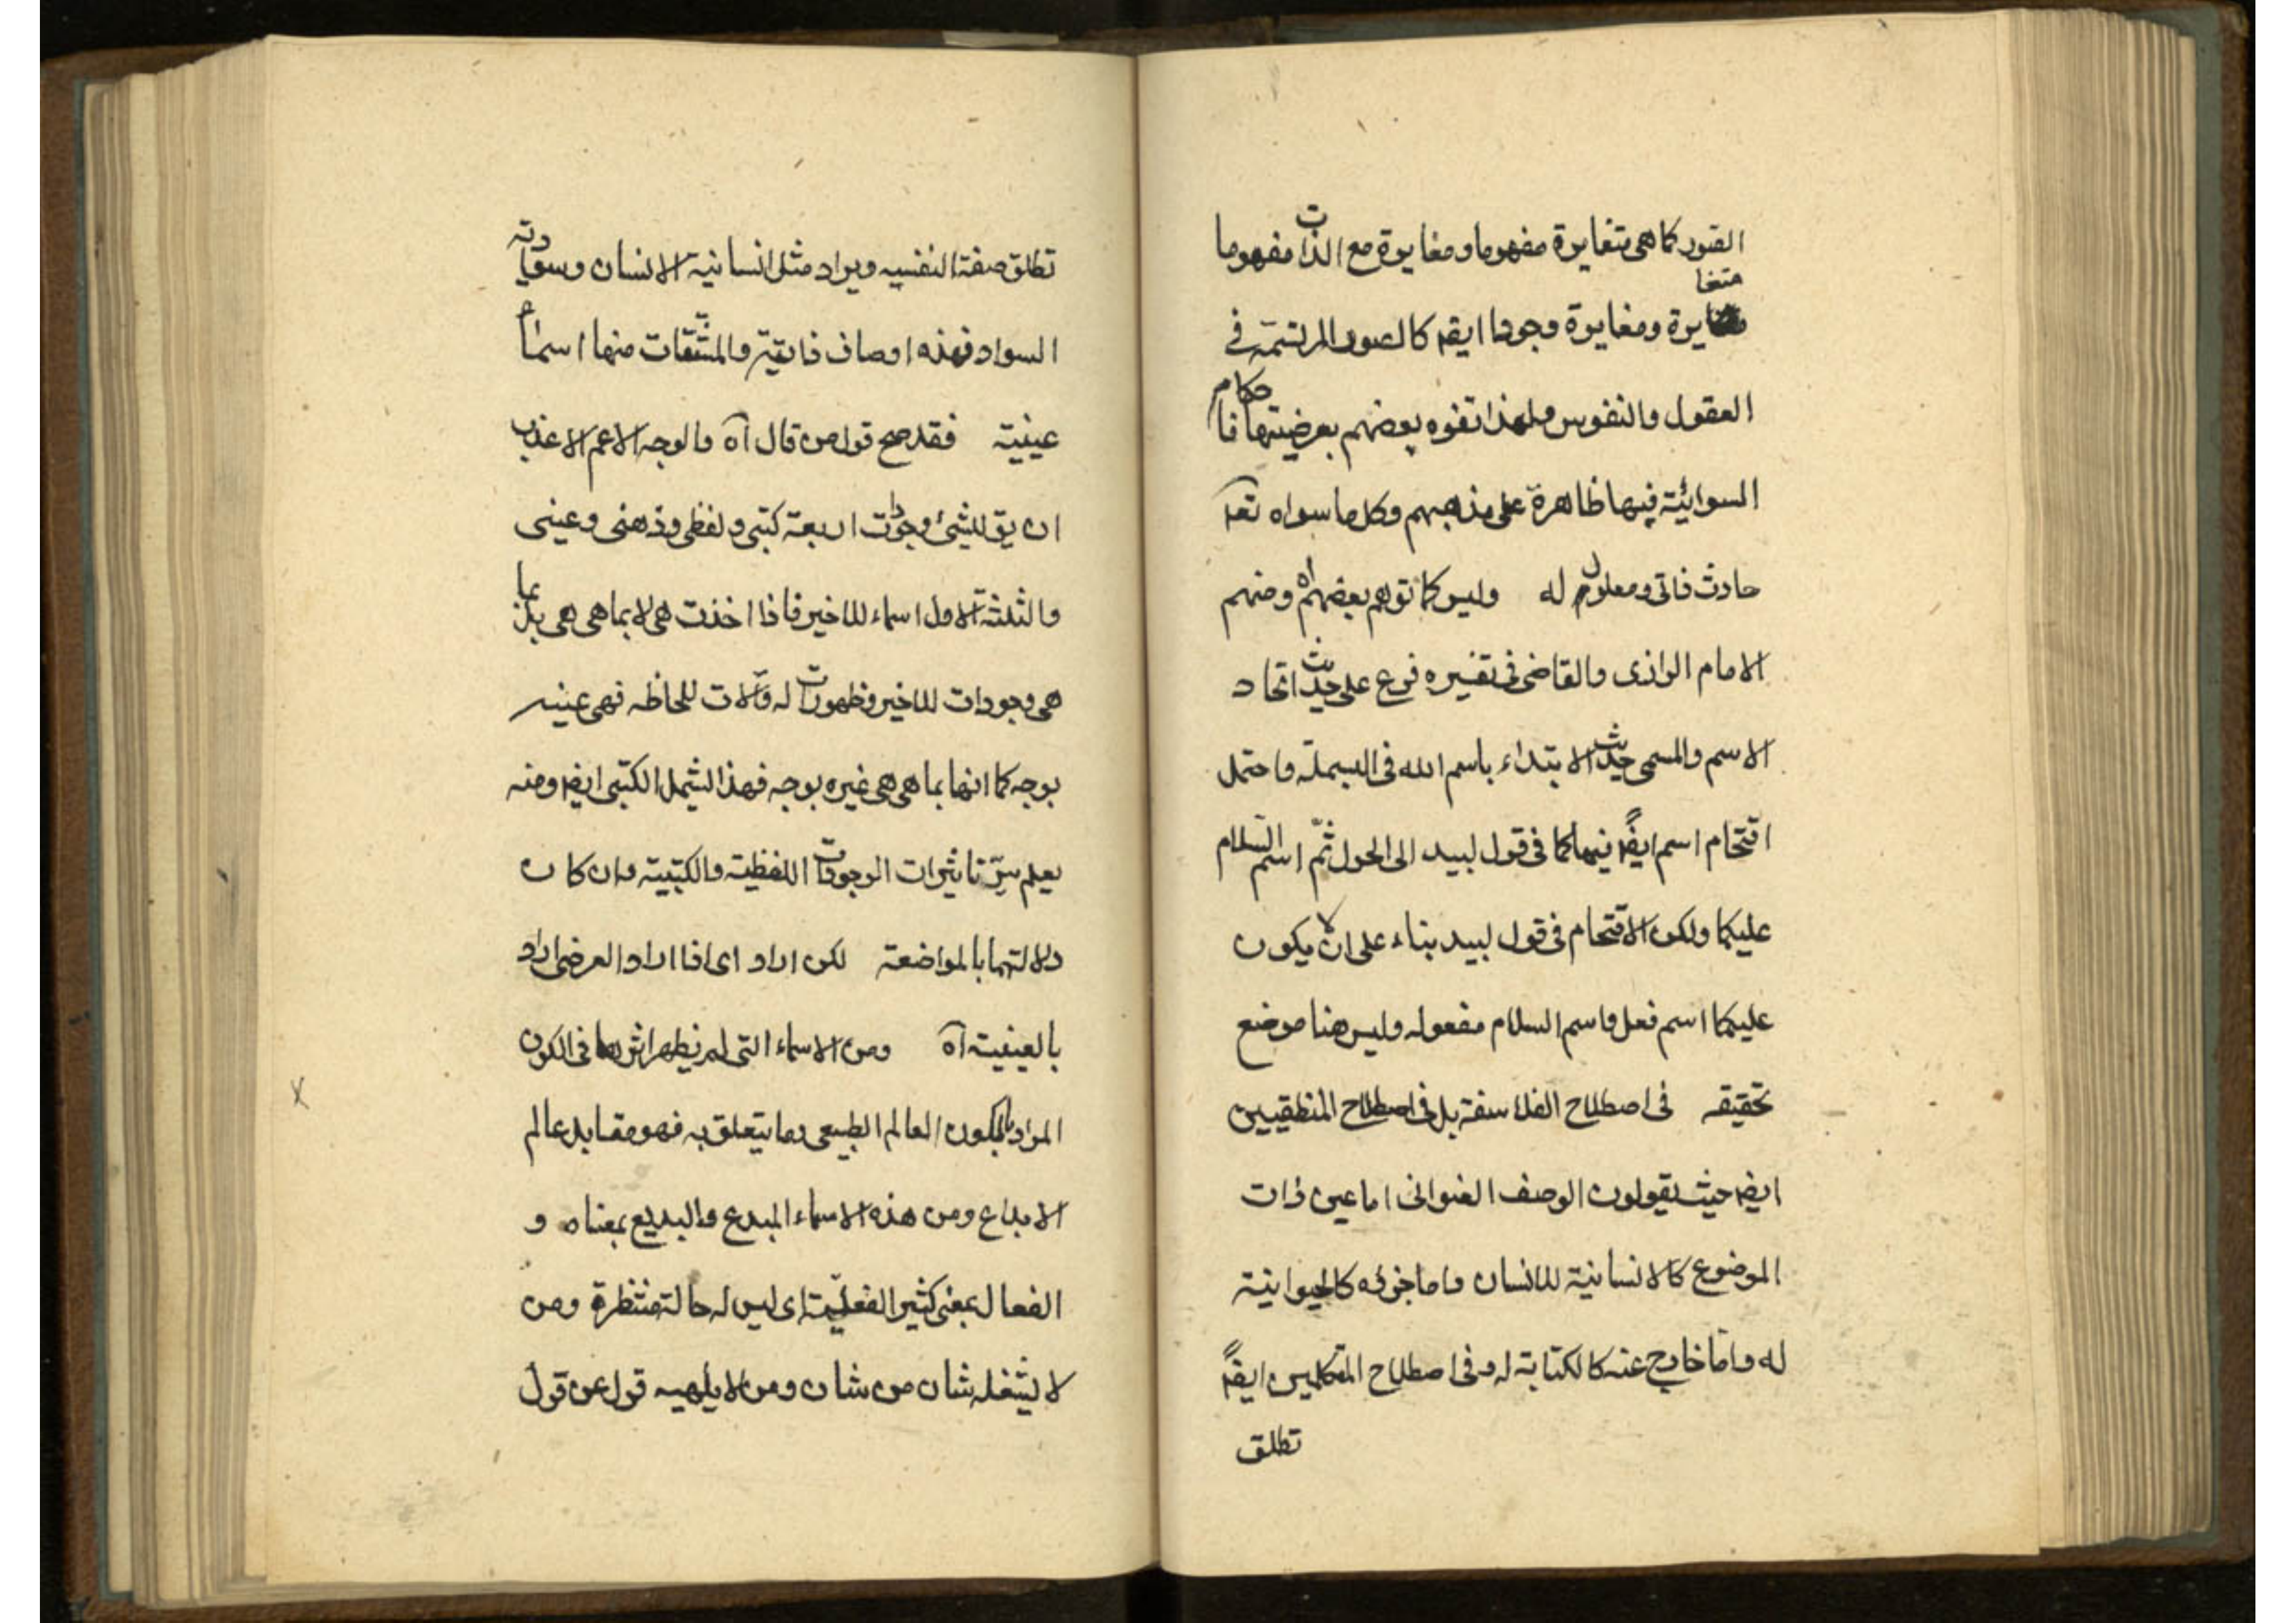 الصور كما هى متغايرة مفهوما ومغايرة مع الذات مفهوما
متغايرة ومغايرة وجودا ايضا كالصور المرتسمة فى
العقول والنفوس ولهذا تفوه بعضهم بعرضيتها فاحكام
السوائية فيها ظاهرة على مذهبهم وكل ما سواه تعا
حادث ذاتى ومعلول له وليس كما توهم بعضهم اه ومنهم
الامام الرازى والقاضى فى تفسيره فرع على حديث اتحاد
الاسم والمسمى حديث الابتداء باسم الله فى البسملة واحتمل
اقتحام اسم ايضاً فيها كما فى قول لبيد الى الحول ثمّ اسم السّلام
عليكما ولكن الاقتحام فى قول لبيد بناء على ان لا يكون
عليكما اسم فعل واسم السلام مفعوله وليس هنا موضع
تحقيقه فى اصطلاح الفلاسفة بل فى اصطلاح المنطقيين
ايضا حيث يقولون الوصف العنوانى اما عين ذات
الموضوع كالانسانية للانسان واما جزئه كالحيوانية
له واما خارج عنه كالكتابة له وفى اصطلاح المتكلمين ايضاً
تطلق
تطلق صفة النفسيه ويراد مثل انسانية الانسان وسوادية
السواد فهذه اوصاف ذاتية والمشتقات منها اسماء
عينية فقد صح قول من قال آه والوجه الاعم الاعذب
ان يق للشئ وجودات اربعة كتبى ولفظى وذهنى وعينى
والثلثة الاول اسماء للاخير فاذا اخذت هى لا بما هى هى بل بما
هى وجودات للاخير وظهورات له وآلات للحاظه فهى عينه
بوجه كما انها بما هى هى غيره بوجه فهذا يشمل الكتبى ايضا ومنه
يعلم سرّ تاثيرات الوجودات اللفظية والكتبية وان كان
دلالتهما بالمواضعة لكن اراد اى اذا اراد العرضى اراد
بالعينية آه ومن الاسماء التى لم يظهر اثرها فى الكون
المراد بالكون العالم الطبيعى وما يتعلق به فهو مقابل عالم
الابداع ومن هذه الاسماء المبدع والبديع بمعناه و
الفعال بمعنى كثير الفعليّة اى ليس له حالة منتظرة ومن
لا يشغله شان من شان ومن لا يلهيه قول عن قول